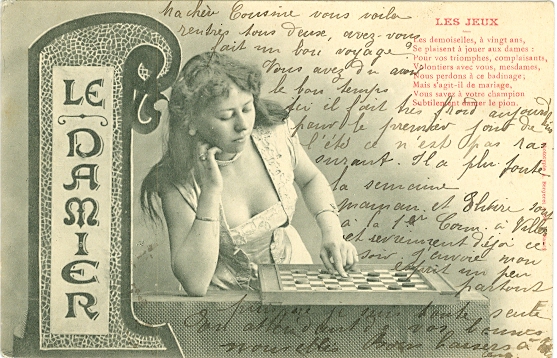 LE
DAMIER
LES JEUX
Les demoiselles, à vingt ans,
Se plaisent à jouer aux dames :
Pour vos triomphes, complaisants,
Volontiers avec vous, mesdames,
Nous perdons à ce badinage ;
Mais s'agit-il de mariage,
Vous savez à votre champion
Subtilement damer le pion.
Ma chère Cousine vous voila
rentrés tous deux, avez-vous
fait un bon voyage ?
Vous avez du avoir
le bon temps
ici il fait très froid aujourd
pour le premier jour de
l'été ce n'est pas ras
surant. Il a plu toute
la semaine
maman et
à la 1re Com. à
et reviennent ce
soir j'envoie mon
esprit un peu
partout
puisque je suis toute seule
En attendant de vos bonnes
nouvelles Bons baisers à